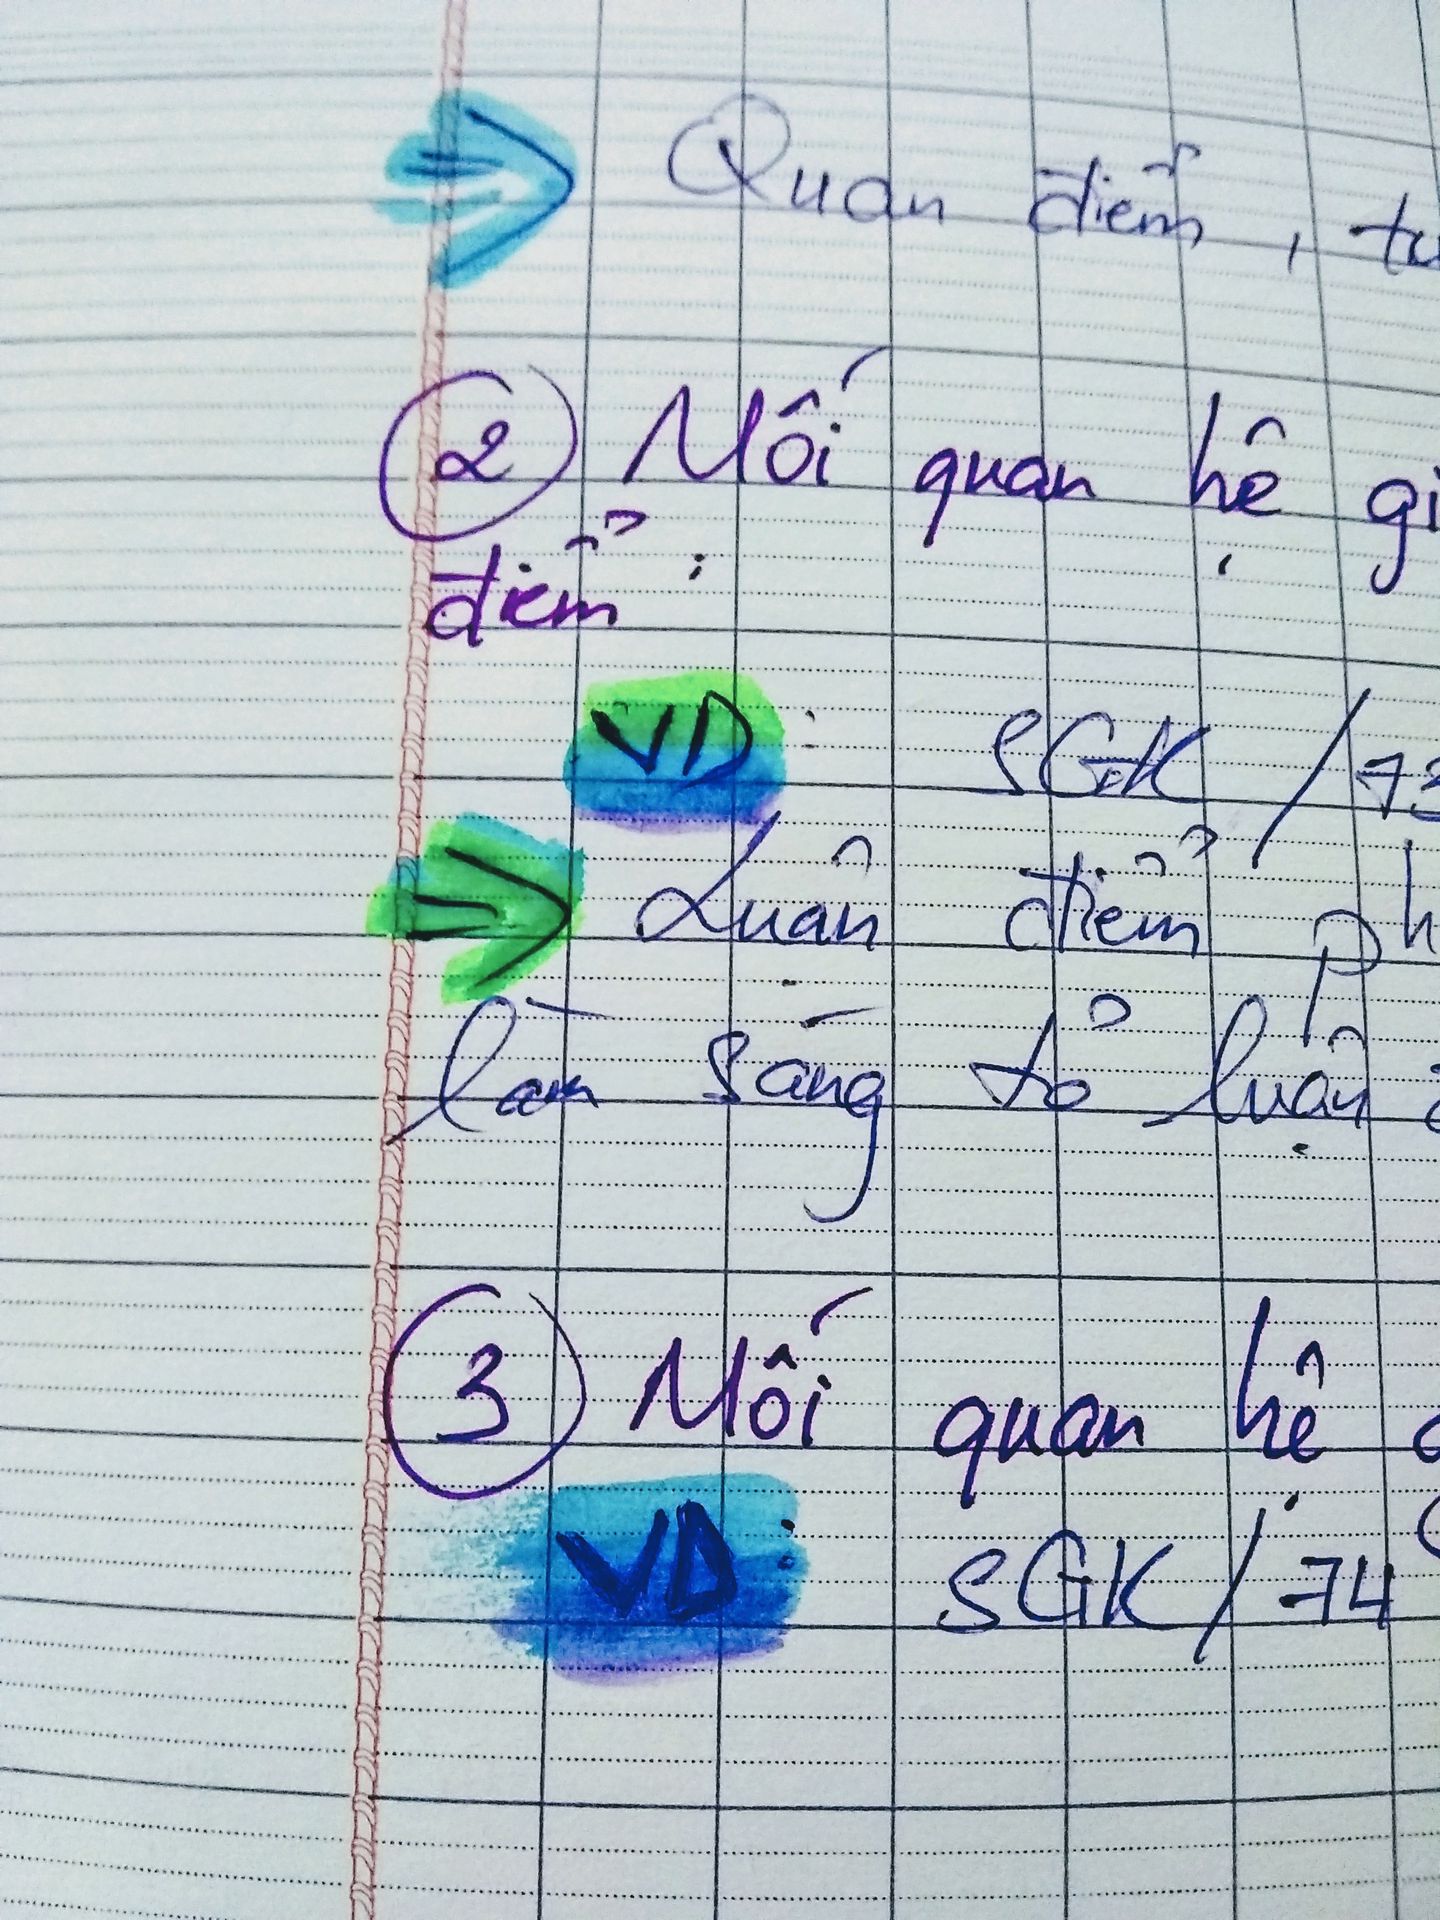 ⇒ Quan điểm, tư
② Mối quan hệ gi
điểm :
VD : SGK / 73
⇒ Luận điểm ph
làm sáng tỏ luận
③ Mối quan hệ
VD : SGK / 74